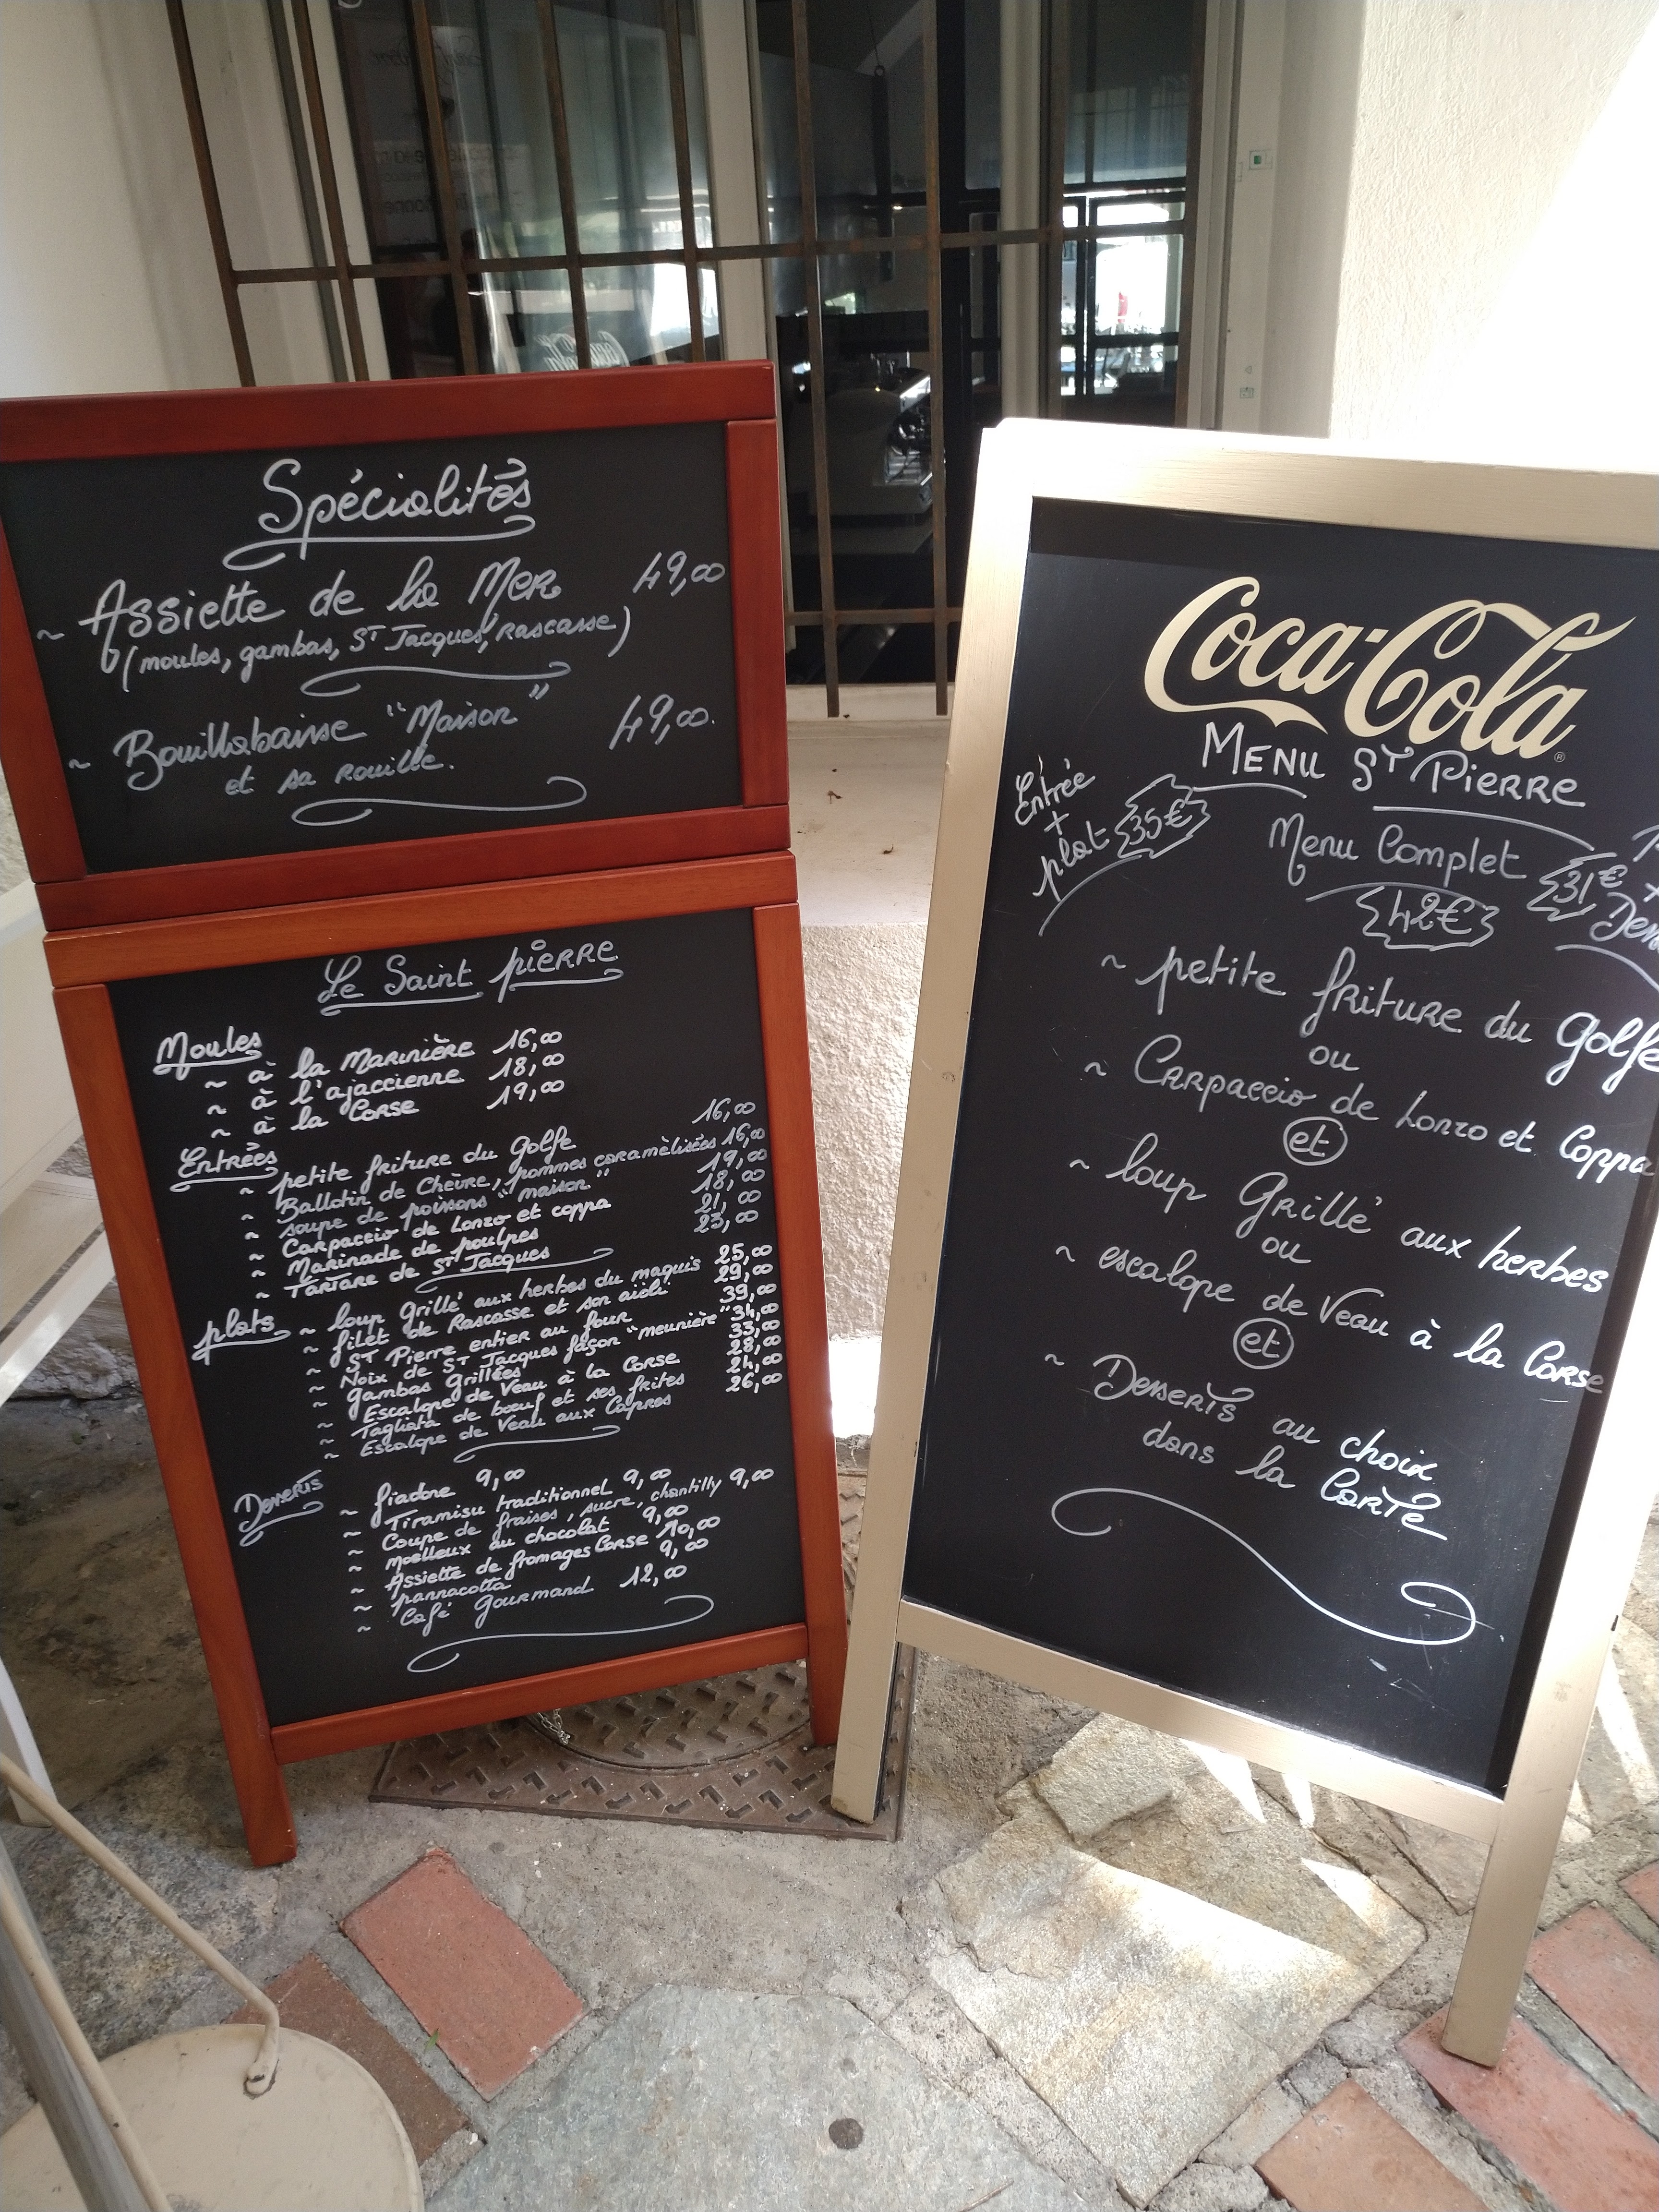 Spécialités
~ Assiette de la Mer 49,00
(moules, gambas, St Jacques, rascasse)
~ Bouillabaisse "Maison" 49,00.
et sa rouille.
Le Saint pierre
Moules
~ à la Marinière 16,00
~ à l'ajaccienne 18,00
~ à la Corse 19,00
Entrées
~ petite friture du Golfe 16,00
~ Ballotin de Chèvre, pommes caramèlisées 16,00
~ soupe de poissons "maison" 19,00
~ Carpaccio de Lonzo et coppa 18,00
~ Marinade de poulpes 21,00
~ Tartare de St Jacques 23,00
plats
~ loup Grillé aux herbes du maquis 25,00
~ filet de Rascasse et son aïoli 29,00
~ St Pierre entier au four 39,00
~ Noix de St Jacques façon "meunière" 34,00
~ gambas Grillées 33,00
~ Escalope de Veau à la Corse 28,00
~ Tagliata de bœuf et ses frites 24,00
~ Escalope de Veau aux Câpres 26,00
Desserts
~ fiadone 9,00
~ Tiramisu traditionnel 9,00
~ Coupe de fraises, sucre, chantilly 9,00
~ moelleux au chocolat 9,00
~ Assiette de fromages Corse 10,00
~ pannacotta 9,00
~ Café Gourmand 12,00
Coca-Cola
Menu St Pierre
Entrée
+
plat 35€
Menu Complet
42€
31€
+
~ petite friture du Golfe
ou
~ Carpaccio de Lonzo et Coppa
et
~ loup Grillé aux herbes
ou
~ escalope de Veau à la Corse
et
~ Desserts au choix
dans la Carte